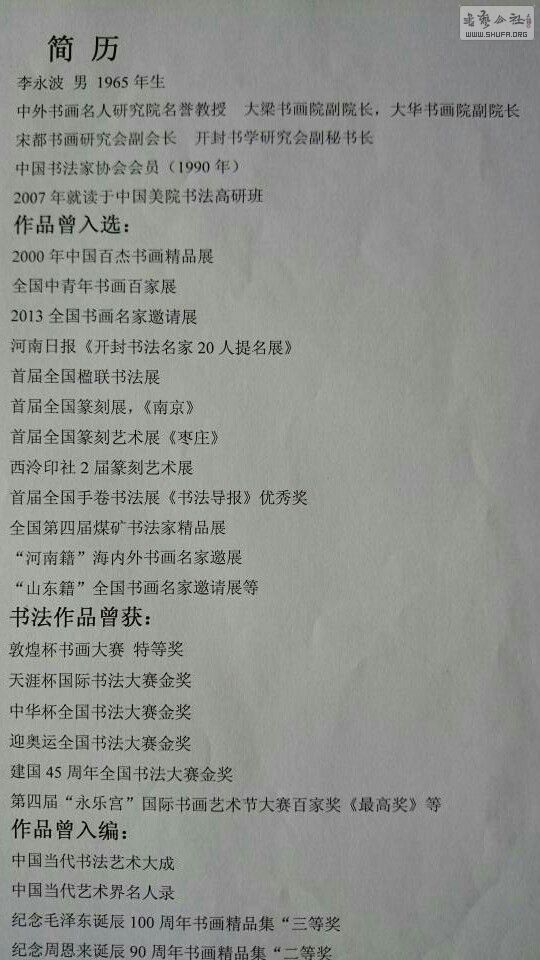 书艺公社
WWW.SHUFA.ORG
简 历
李永波 男 1965 年生
中外书画名人研究院名誉教授 大梁书画院副院长，大华书画院副院长
宋都书画研究会副会长 开封书学研究会副秘书长
中国书法家协会会员（1990 年）
2007 年就读于中国美院书法高研班
作品曾入选：
2000 年中国百杰书画精品展
全国中青年书画百家展
2013 全国书画名家邀请展
河南日报《开封书法名家 20 人提名展》
首届全国楹联书法展
首届全国篆刻展，《南京》
首届全国篆刻艺术展《枣庄》
西泠印社 2 届篆刻艺术展
首届全国手卷书法展《书法导报》优秀奖
全国第四届煤矿书法家精品展
“河南籍”海内外书画名家邀展
“山东籍”全国书画名家邀请展等
书法作品曾获：
敦煌杯书画大赛 特等奖
天涯杯国际书法大赛金奖
中华杯全国书法大赛金奖
迎奥运全国书法大赛金奖
建国 45 周年全国书法大赛金奖
第四届“永乐宫”国际书画艺术节大赛百家奖《最高奖》等
作品曾入编：
中国当代书法艺术大成
中国当代艺术界名人录
纪念毛泽东诞辰 100 周年书画精品集“三等奖
纪念周恩来诞辰 90 周年书画精品集“二等奖